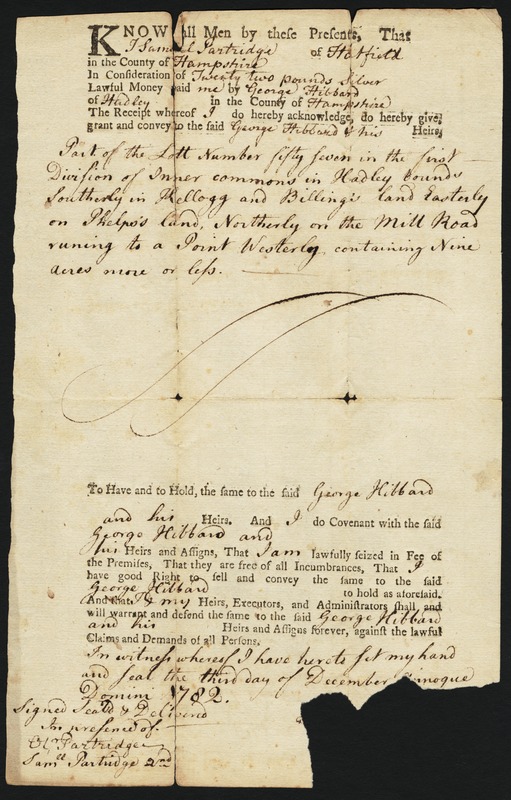 KNOW all Men by these Presents, That
I Samuel Partridge of Hatfield
in the County of Hampshire
In Consideration of Twenty two pounds Silver
Lawful Money paid me by George Hibbard
of Hadley in the County of Hampshire
The Receipt whereof I do hereby acknowledge, do hereby give,
grant and convey to the said George Hibbard & his Heirs,
Part of the Lott Number fifty seven in the first
Division of Inner commons in Hadley bounds
Southerly in Kellogg and Billing's land Easterly
on Phelps's land, Northerly on the Mill Road
runing to a Point Westerly containing Nine
acres more or less.
To Have and to Hold, the same to the said George Hibbard
and his Heirs. And I do Covenant with the said
George Hibbard and
his Heirs and Assigns, That I am lawfully seized in Fee of
the Premises, That they are free of all Incumbrances, That I
have good Right to sell and convey the same to the said
George Hibbard to hold as aforesaid.
And that I & my Heirs, Executors, and Administrators shall, and
will warrant and defend the same to the said George Hibbard
and his Heirs and Assigns forever, against the lawful
Claims and Demands of all Persons.
In witness whereof I have hereto set my hand
and seal the third day of December Annoque
Domini 1782.
Signed Seal'd & Delivered
In presence of
Partridge
Sam<sup>ll</sup> Partridge 2nd